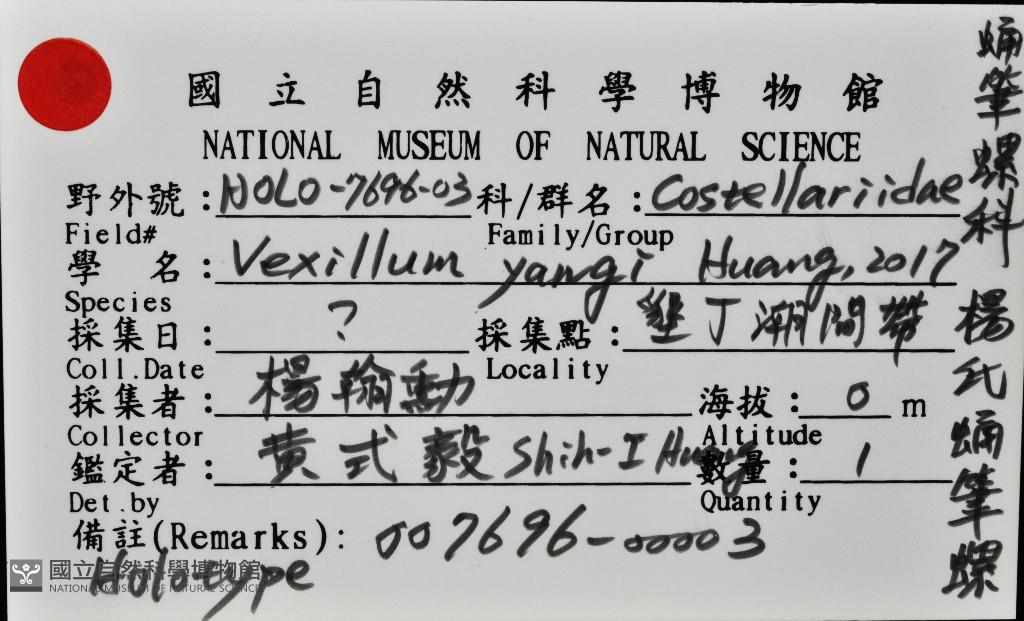 國立自然科學博物館
NATIONAL MUSEUM OF NATURAL SCIENCE
野外號：HOLO-7696-03 科/群名：Costellariidae
Field# Family/Group
學 名：Vexillum yangi Huang, 2017
Species
採集日：? 採集點：墾丁潮間帶
Coll.Date Locality
採集者：楊翰勳 海拔：0 m
Collector Altitude
鑑定者：黃式毅 Shih-I Huang 數量：1
Det.by Quantity
備註(Remarks): 007696-00003
Holotype
蛹筆螺科 楊氏蛹筆螺
國立自然科學博物館
NATIONAL MUSEUM OF NATURAL SCIENCE